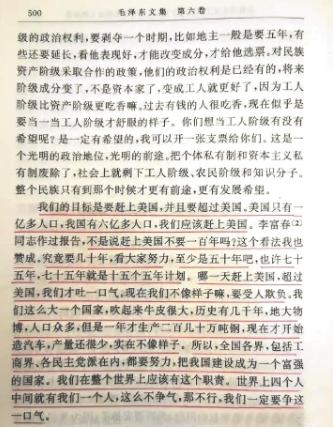 500 毛泽东文集 第六卷
级的政治权利,要剥夺一个时期,比如地主一般是要五年,有
些还要延长,看他表现好,才能改变成分,才给他选票。对民族
资产阶级采取合作的政策,他们的政治权利是已经有的,将来
阶级成分变了,不是资本家了,变成工人就更好了,因为工人
阶级比资产阶级更吃香嘛,过去有钱的人很吃香,现在似乎是
要当一当工人阶级才舒服的样子。你们想当工人阶级有没有
希望呢?是一定有希望的,我可以开一张支票给你们。这是一
个光明的政治地位,光明的前途。把个体私有制和资本主义私
有制废除了,社会上就剩下工人阶级、农民阶级和知识分子。
整个民族只有到那个时候才更有前途,更有发展希望。
我们的目标是要赶上美国,并且要超过美国。美国只有一
亿多人口,我国有六亿多人口,我们应该赶上美国。李富春〔2〕
同志作过报告,不是说赶上美国要一百年吗?这个看法我也
赞成。究竟要几十年,看大家努力,至少是五十年吧,也许七十
五年,七十五年就是十五个五年计划。哪一天赶上美国,超过
美国,我们才吐一口气。现在我们不像样子嘛,要受人欺负。我
们这么大一个国家,吹起来牛皮很大,历史有几千年,地大物
博,人口众多,但是一年才生产二百几十万吨钢,现在才开始
造汽车,产量还很少,实在不像样子。所以,全国各界,包括工
商界、各民主党派在内,都要努力,把我国建设成为一个富强
的国家。我们在整个世界上应该有这个职责。世界上四个人
中间就有我们一个人,这么不争气,那不行,我们一定要争这
一口气。